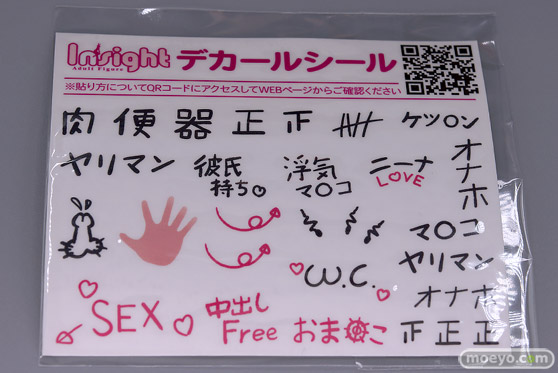 Insight
Adult Figure
デカールシール
※貼り方についてQRコードにアクセスしてWEBページからご確認ください
肉 便 器 正 下 ケツ〇ン
ヤリマン 彼氏持ち。 浮気マ〇コ ニーナ LOVE オナホ
マ〇コ
ヤリマン
W.C.
オナホ
SEX 中出し Free おま〇こ 下 正 正
moeyo.com